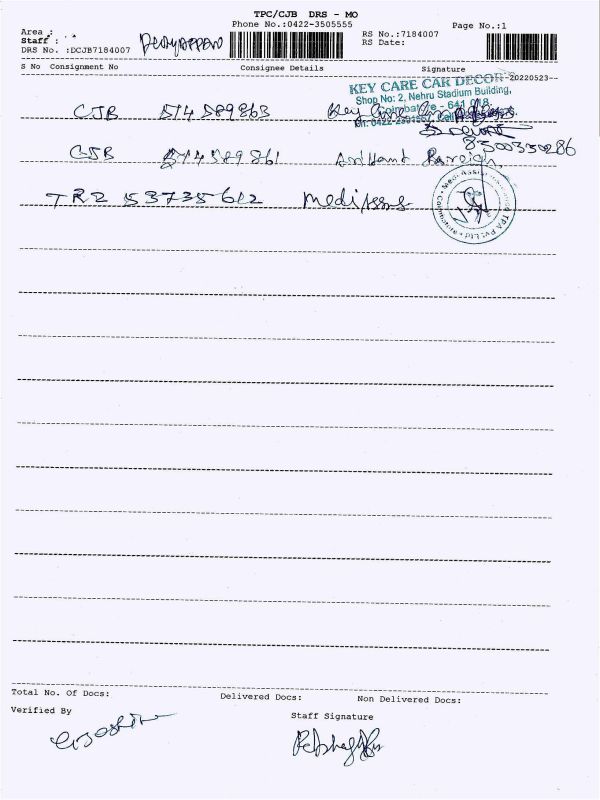 TPC/CJB DRS - MO
Phone No.:0422-3505555
Page No.:1
Area :
Staff :
RS No.:7184007
DRS No. :DCJB7184007
RS Date:
S No Consignment No Consignee Details Signature
20220523
KEY CARE CAR DECOR
Shop No: 2, Nehru Stadium Building,
Coimbatore - 641 018.
CJB 514589863 Key Care Car
CJB 514589861
8300330286
TRZ 53735612 Mediassist
Total No. Of Docs: Delivered Docs: Non Delivered Docs:
Verified By
Staff Signature